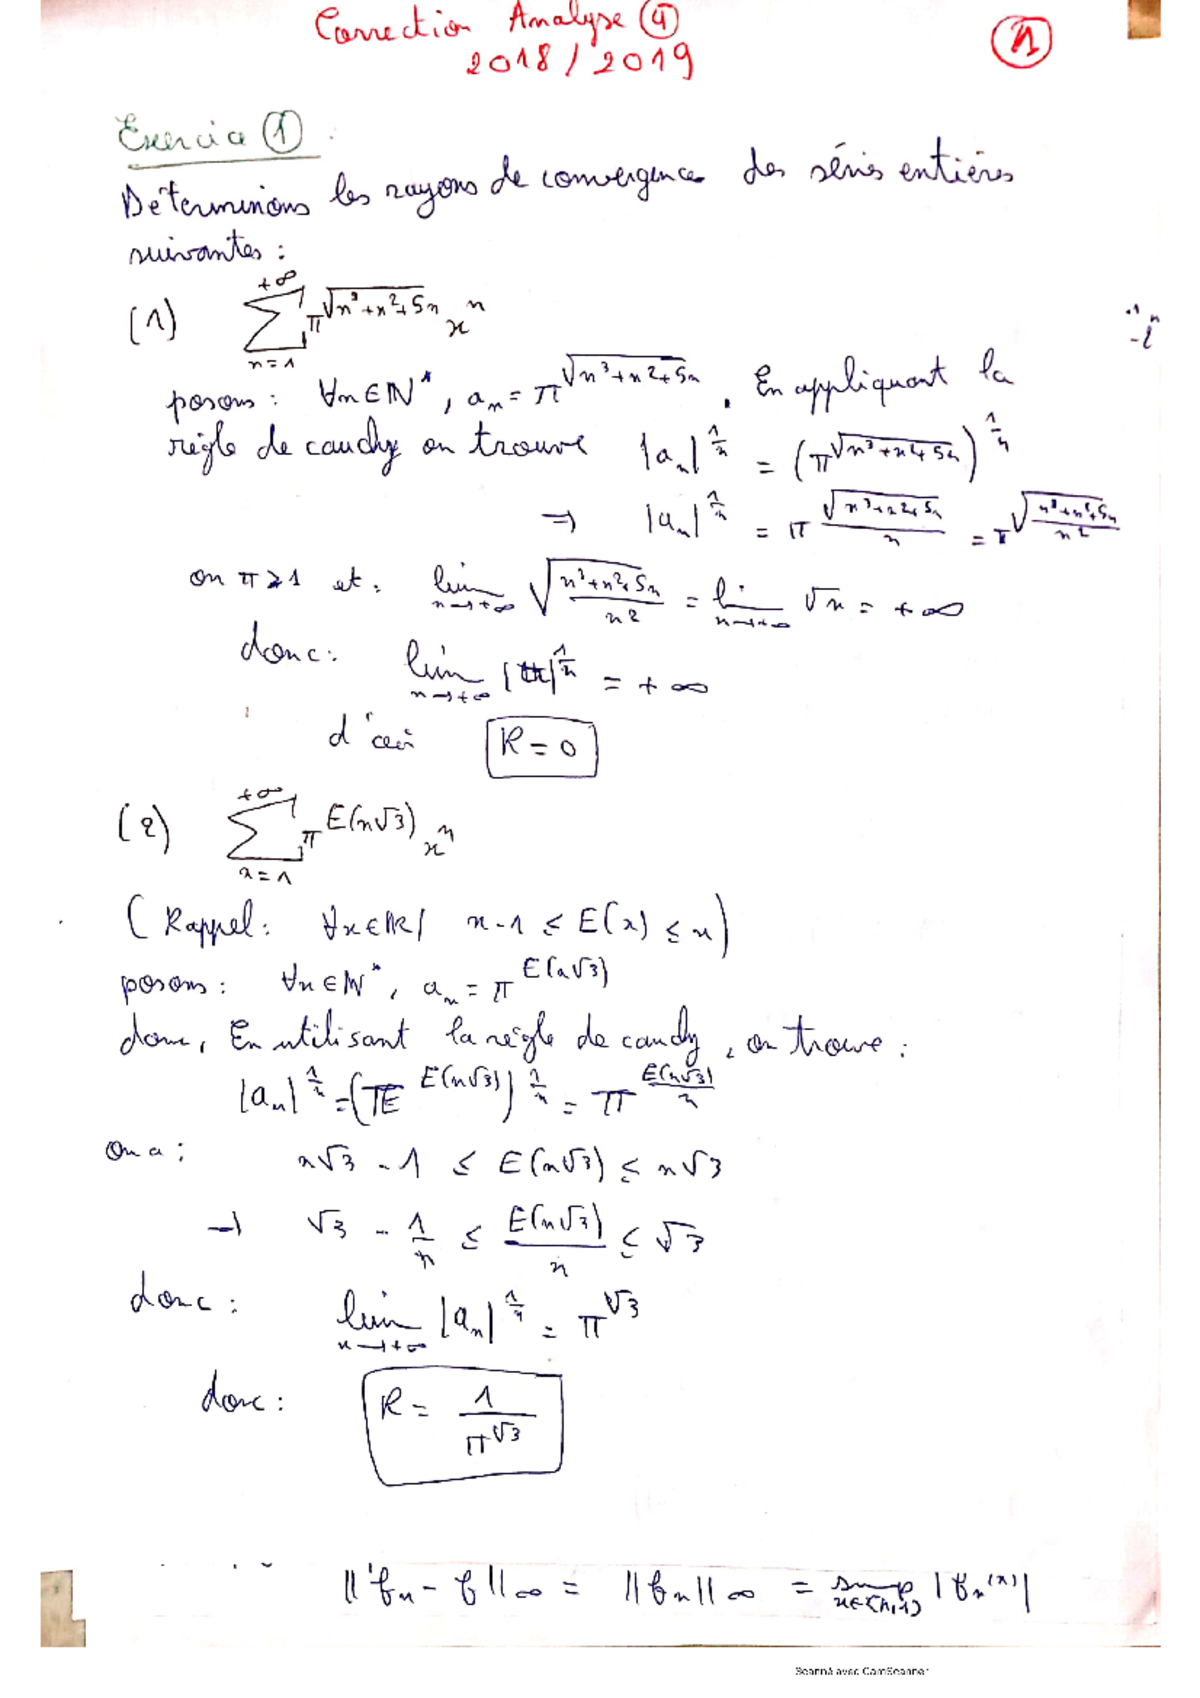 Correction Analyse ④
2018/2019
①
Exercice ① :
Déterminons les rayons de convergence des séries entières
suivantes :
(1) $\sum_{n=1}^{+\infty} \pi^{\sqrt{n^3+n^2+5n}} x^n$
posons : ∀n∈ℕ*, $a_n = \pi^{\sqrt{n^3+n^2+5n}}$. En appliquant la
règle de cauchy on trouve $|a_n|^{\frac{1}{n}} = (\pi^{\sqrt{n^3+n^2+5n}})^{\frac{1}{n}}$
⇒ $|a_n|^{\frac{1}{n}} = \pi^{\frac{\sqrt{n^3+n^2+5n}}{n}} = \pi^{\sqrt{\frac{n^3+n^2+5n}{n^2}}}$
on π⩾1 et : $\lim_{n\to+\infty} \sqrt{\frac{n^3+n^2+5n}{n^2}} = \lim_{n\to+\infty} \sqrt{n} = +\infty$
donc : $\lim_{n\to+\infty} | |^{\frac{1}{n}} = +\infty$
d'où R = 0
(2) $\sum_{n=1}^{+\infty} \pi^{E(n\sqrt{3})} x^n$
(Rappel : ∀x∈ℝ/ x-1 ≤ E(x) ≤ x)
posons : ∀n∈ℕ*, $a_n = \pi^{E(n\sqrt{3})}$
donc, En utilisant la règle de caudy, on trouve :
$|a_n|^{\frac{1}{n}} = (\pi^{E(n\sqrt{3})})^{\frac{1}{n}} = \pi^{\frac{E(n\sqrt{3})}{n}}$
on a : $n\sqrt{3} - 1 ≤ E(n\sqrt{3}) ≤ n\sqrt{3}$
→ $\sqrt{3} - \frac{1}{n} ≤ \frac{E(n\sqrt{3})}{n} ≤ \sqrt{3}$
donc : $\lim_{n\to+\infty} |a_n|^{\frac{1}{n}} = \pi^{\sqrt{3}}$
donc : $R = \frac{1}{\pi^{\sqrt{3}}}$
$||f_n - f||_\infty = ||f_n||_\infty = \sup |f_n(x)|$
Scanné avec CamScanner